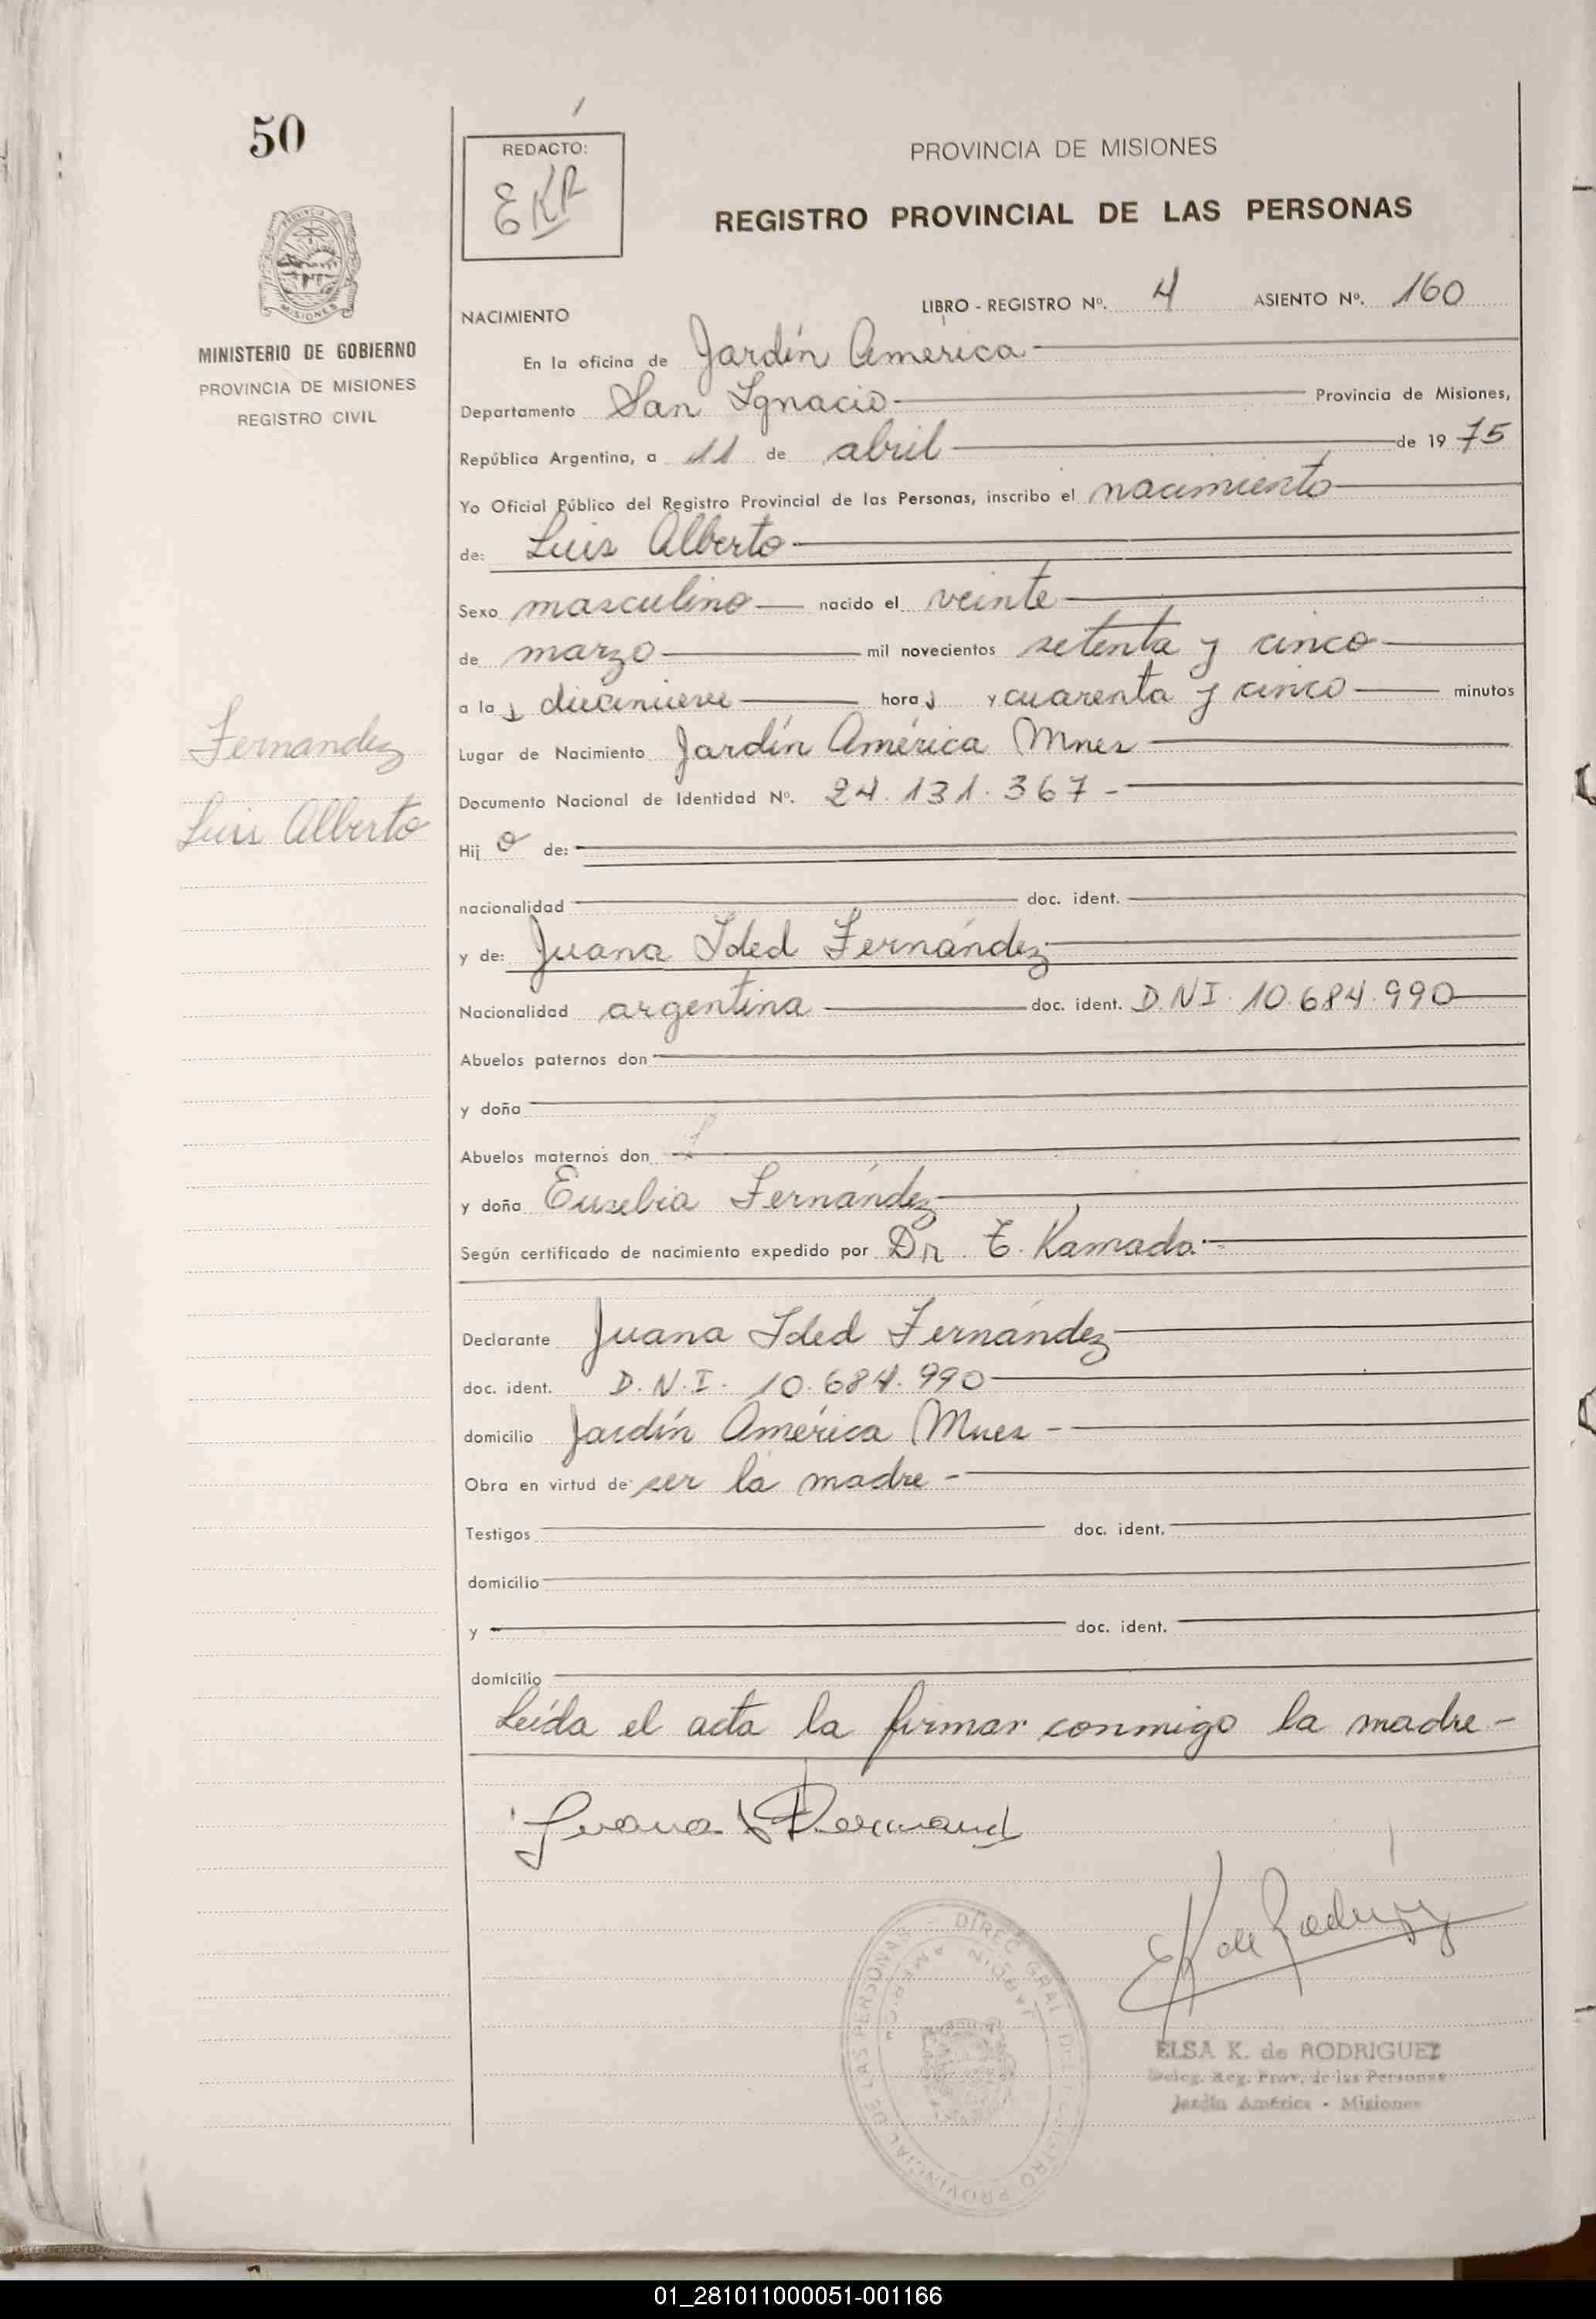 50
REDACTO:
EKR
PROVINCIA DE MISIONES
REGISTRO PROVINCIAL DE LAS PERSONAS
MISIONES
MINISTERIO DE GOBIERNO
PROVINCIA DE MISIONES
REGISTRO CIVIL
NACIMIENTO LIBRO - REGISTRO Nº. 4 ASIENTO Nº. 160
En la oficina de Jardín America
Departamento San Ignacio Provincia de Misiones,
República Argentina, a 11 de abril de 1975
Yo Oficial Público del Registro Provincial de las Personas, inscribo el nacimiento
de: Luis Alberto
Sexo masculino nacido el veinte
de marzo mil novecientos setenta y cinco
a las diecinueve horas y cuarenta y cinco minutos
Fernandez
Luis Alberto
Lugar de Nacimiento Jardín América Mnes
Documento Nacional de Identidad Nº. 24.131.367-
Hijo de:
nacionalidad doc. ident.
y de: Juana Ided Fernández
Nacionalidad argentina doc. ident. D.N.I. 10.684.990
Abuelos paternos don
y doña
Abuelos maternos don
y doña Eusebia Fernández
Según certificado de nacimiento expedido por Dr. E. Kamada
Declarante Juana Ided Fernández
doc. ident. D.N.I. 10.684.990
domicilio Jardín América Mnes -
Obra en virtud de ser la madre -
Testigos doc. ident.
domicilio
y doc. ident.
domicilio
Leída el acta la firman conmigo la madre -
Juana
EK de Rodriguez
DIREC. GRAL. DEL REGISTRO PROVINCIAL DE LAS PERSONAS
JARDIN AMERICA
ELSA K. de RODRIGUEZ
Deleg. Reg. Prov. de las Personas
Jardín América - Misiones
01_281011000051-001166